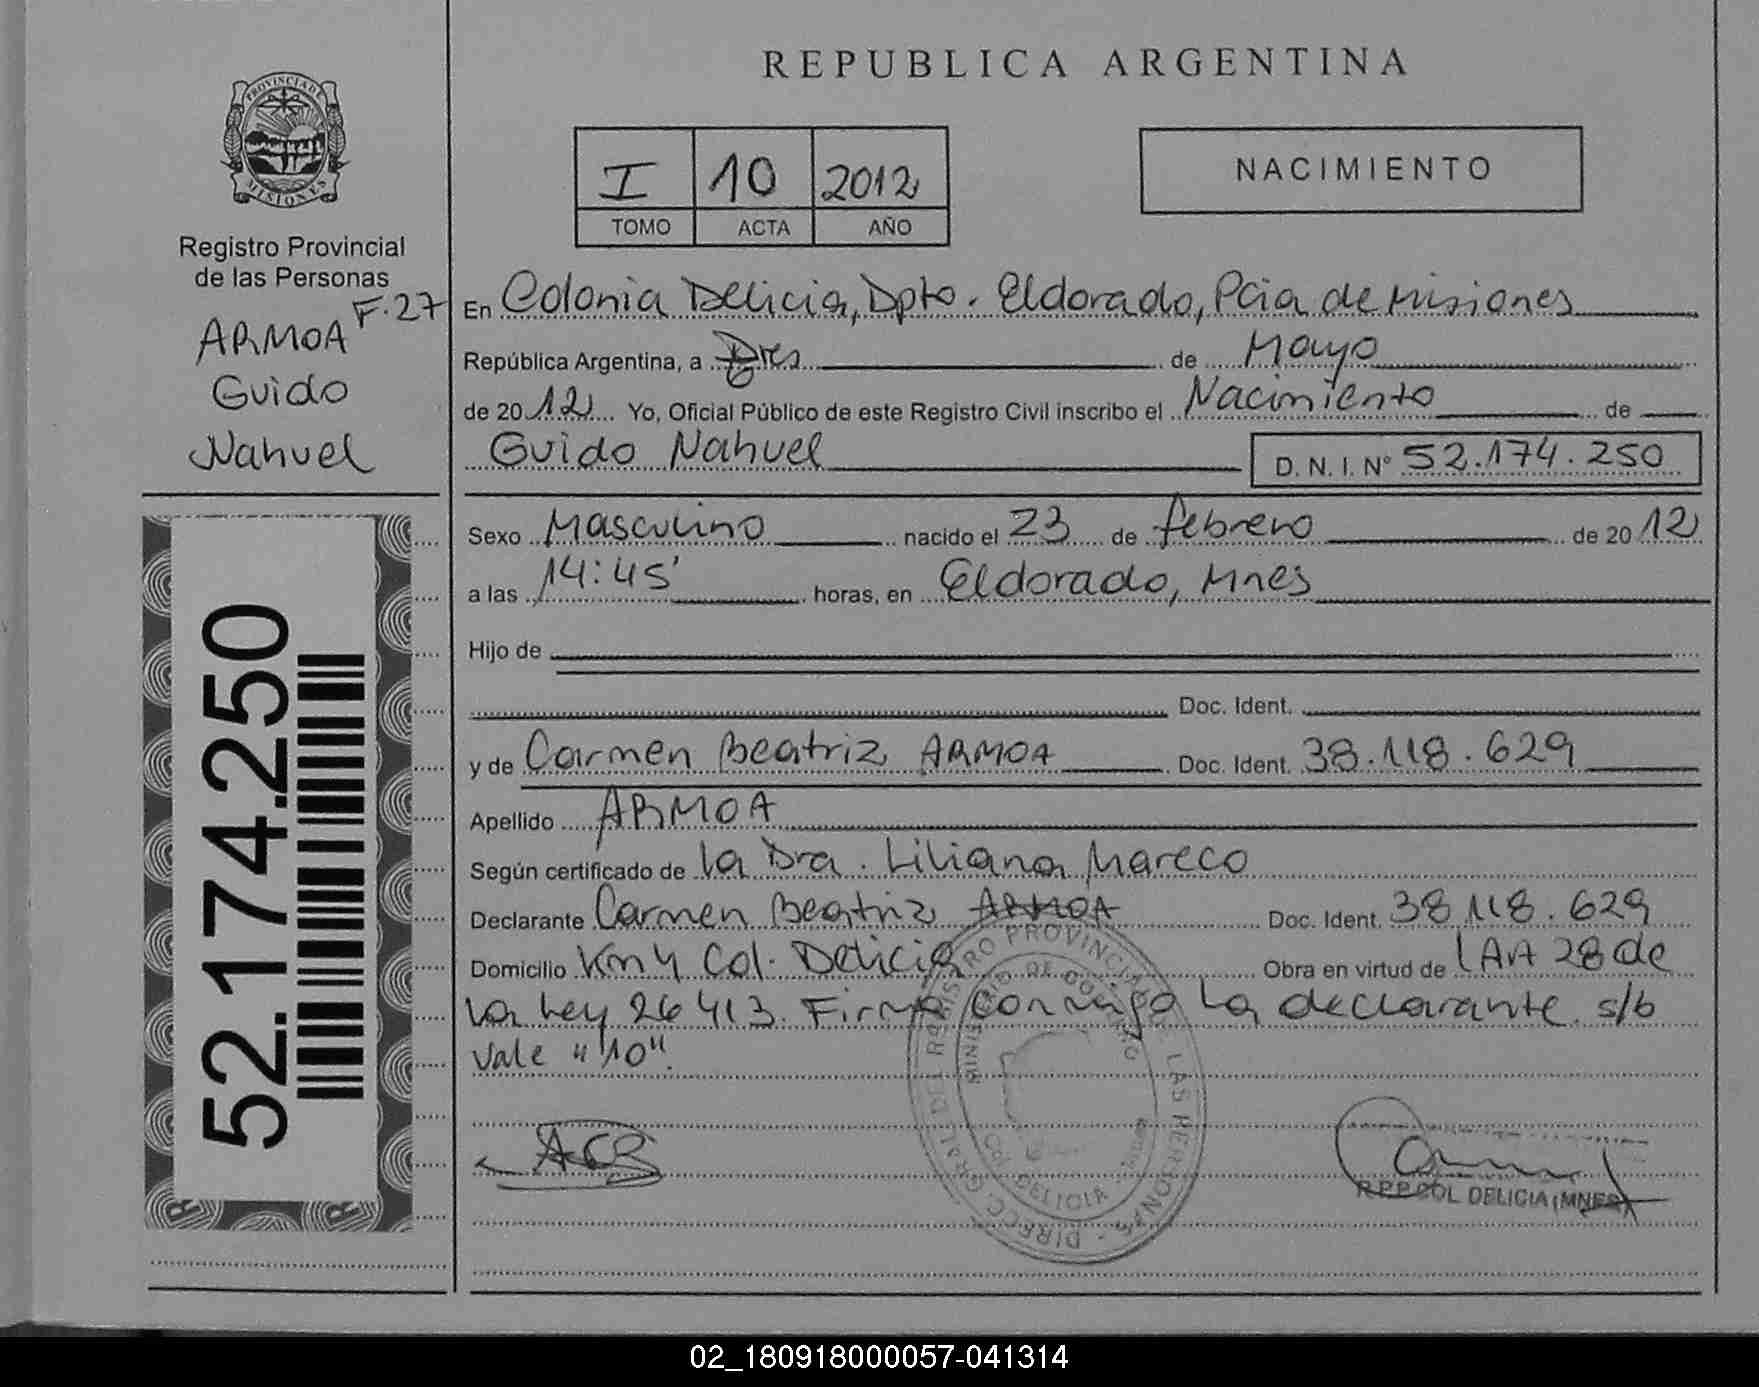 REPUBLICA ARGENTINA
PROVINCIA DE
MISIONES
Registro Provincial
de las Personas
F. 27
ARMOA
Guido
Nahuel
52.174.250
I 10 2012
TOMO ACTA AÑO
NACIMIENTO
En Colonia Delicia, Dpto. Eldorado, Pcia de Misiones
República Argentina, a Tres de Mayo
de 2012 Yo, Oficial Público de este Registro Civil inscribo el Nacimiento de
Guido Nahuel D. N. I. Nº 52.174.250
Sexo Masculino nacido el 23 de febrero de 2012
a las 14:45' horas, en Eldorado, Mnes
Hijo de
Doc. Ident.
y de Carmen Beatriz ARMOA Doc. Ident. 38.118.629
Apellido ARMOA
Según certificado de la Dra. Liliana Mareco
Declarante Carmen Beatriz ARMOA Doc. Ident. 38.118.629
Domicilio Km 4 Col. Delicia Obra en virtud de l Art 28 de
la Ley 26413. Firma conmigo la declarante. s/b
Vale "10".
ACB
DIRECC. GRAL. DEL REGISTRO PROVINCIAL DE LAS PERSONAS
MINISTERIO DE GOBIERNO
DELICIA
R.P.P. COL DELICIA (MNES)
02_180918000057-041314